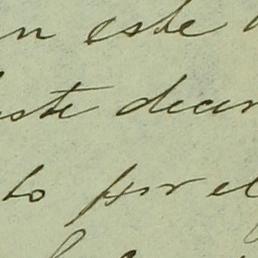 n este
este decr
to por el